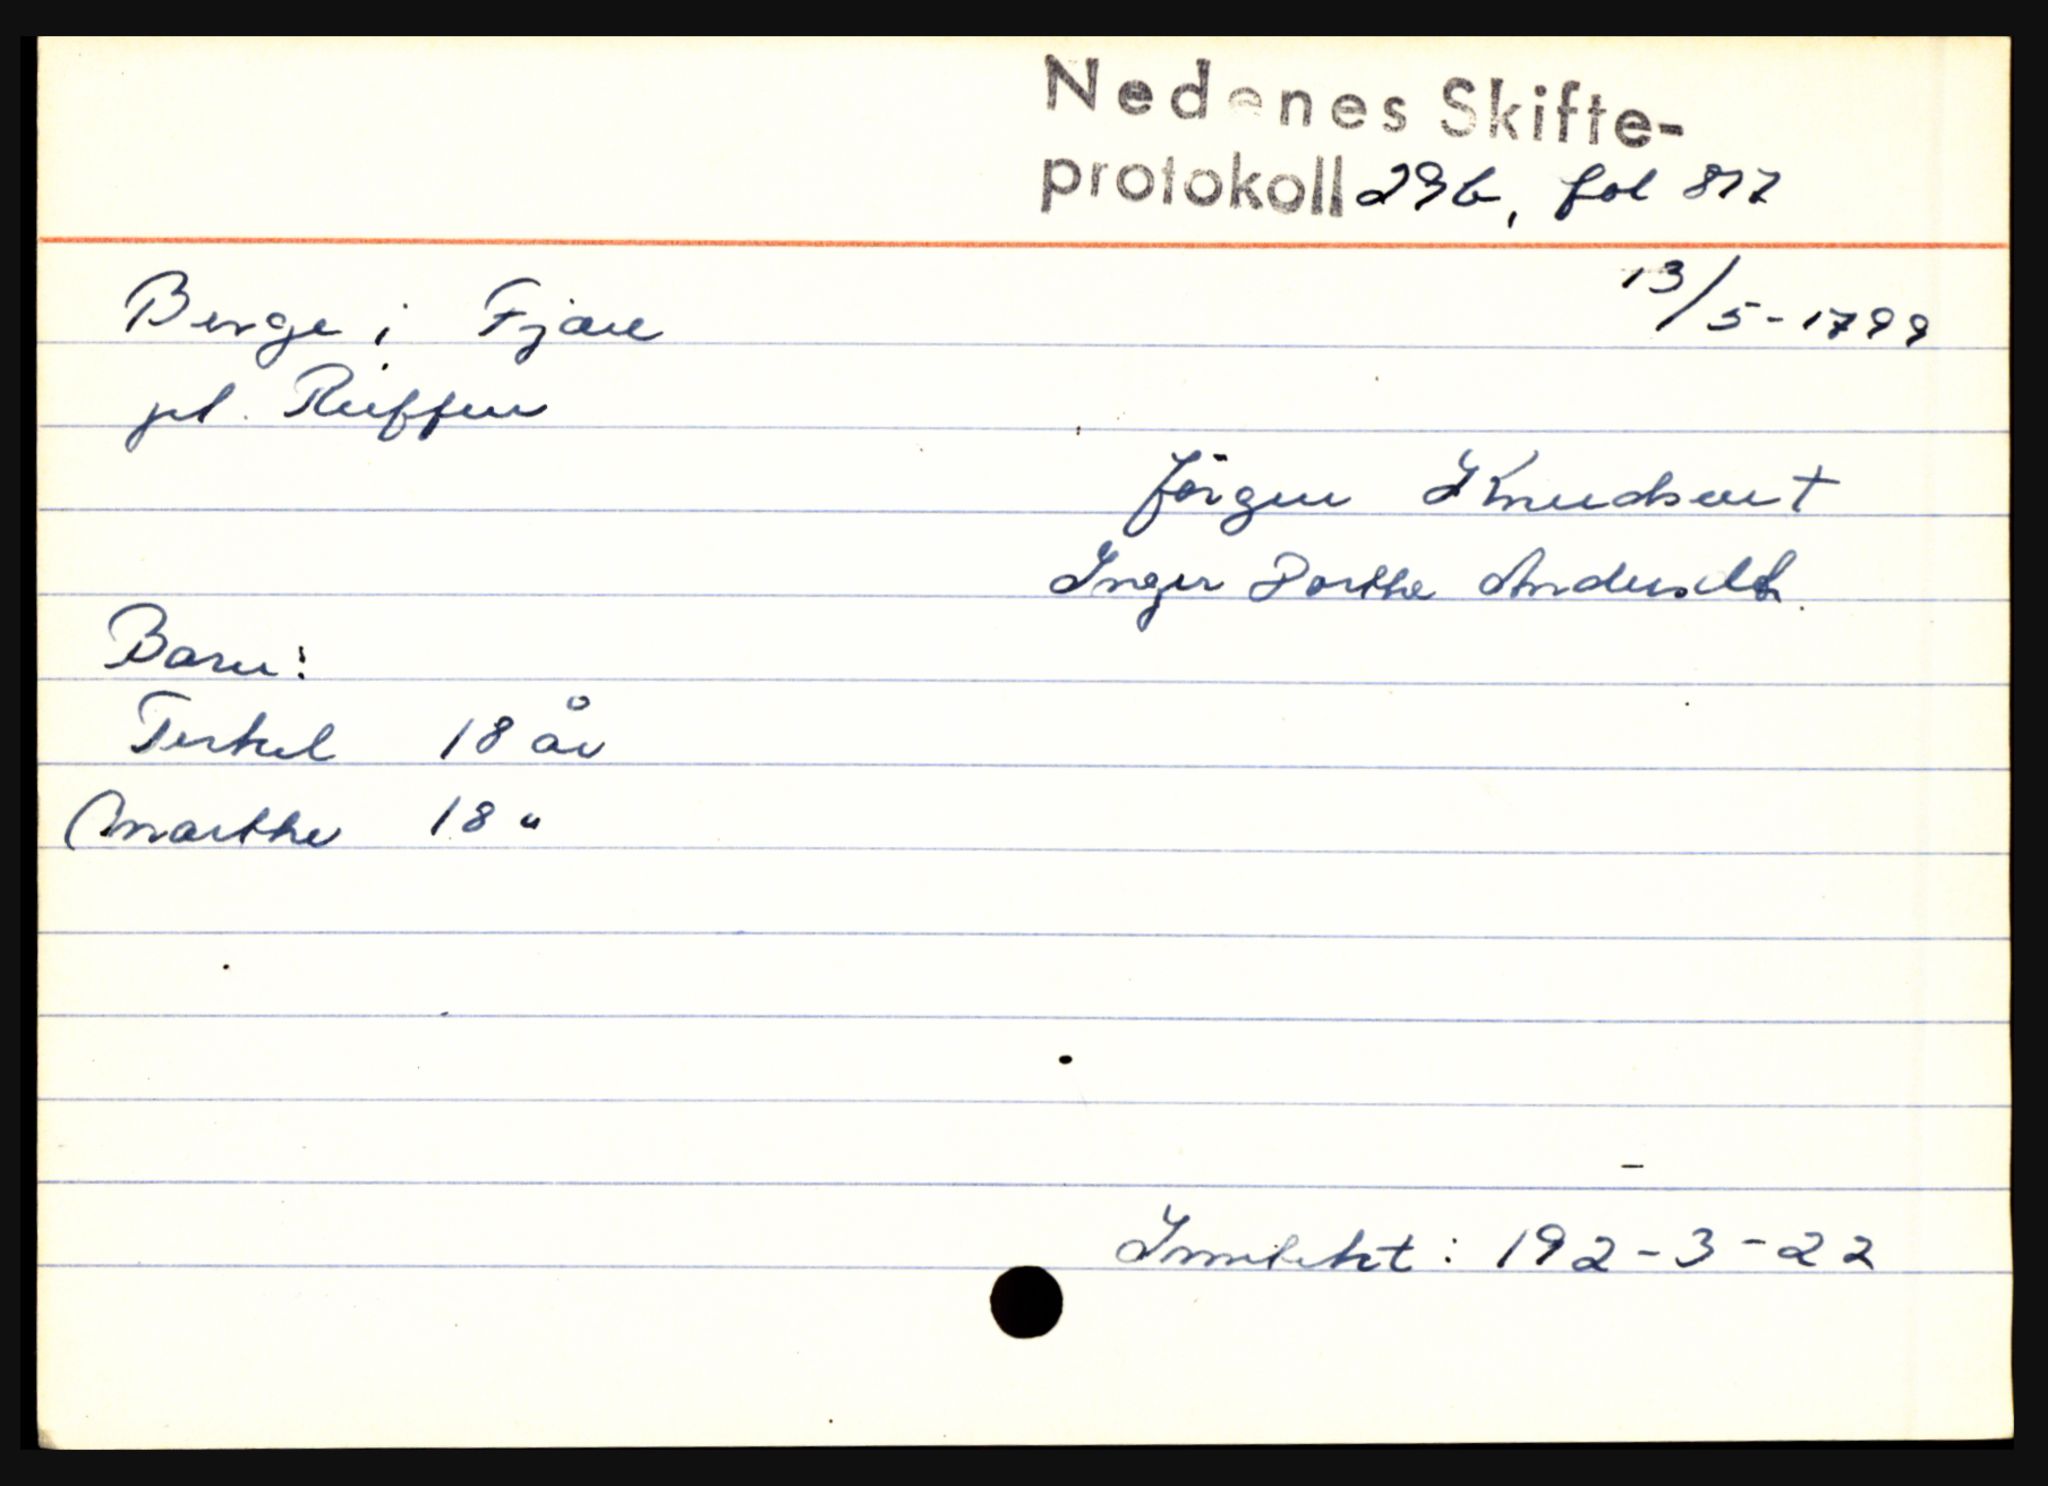 Nedenes Skifte-
protokoll 29b, fol 817
13/5-1799
Berge i Fjære
pl. Reiffen
Jörgen Knudsen †
Inger Dorthe Andersdtr.
Barn:
Terkel 18 år
Marthe 18 "
Inntekt: 192-3-22